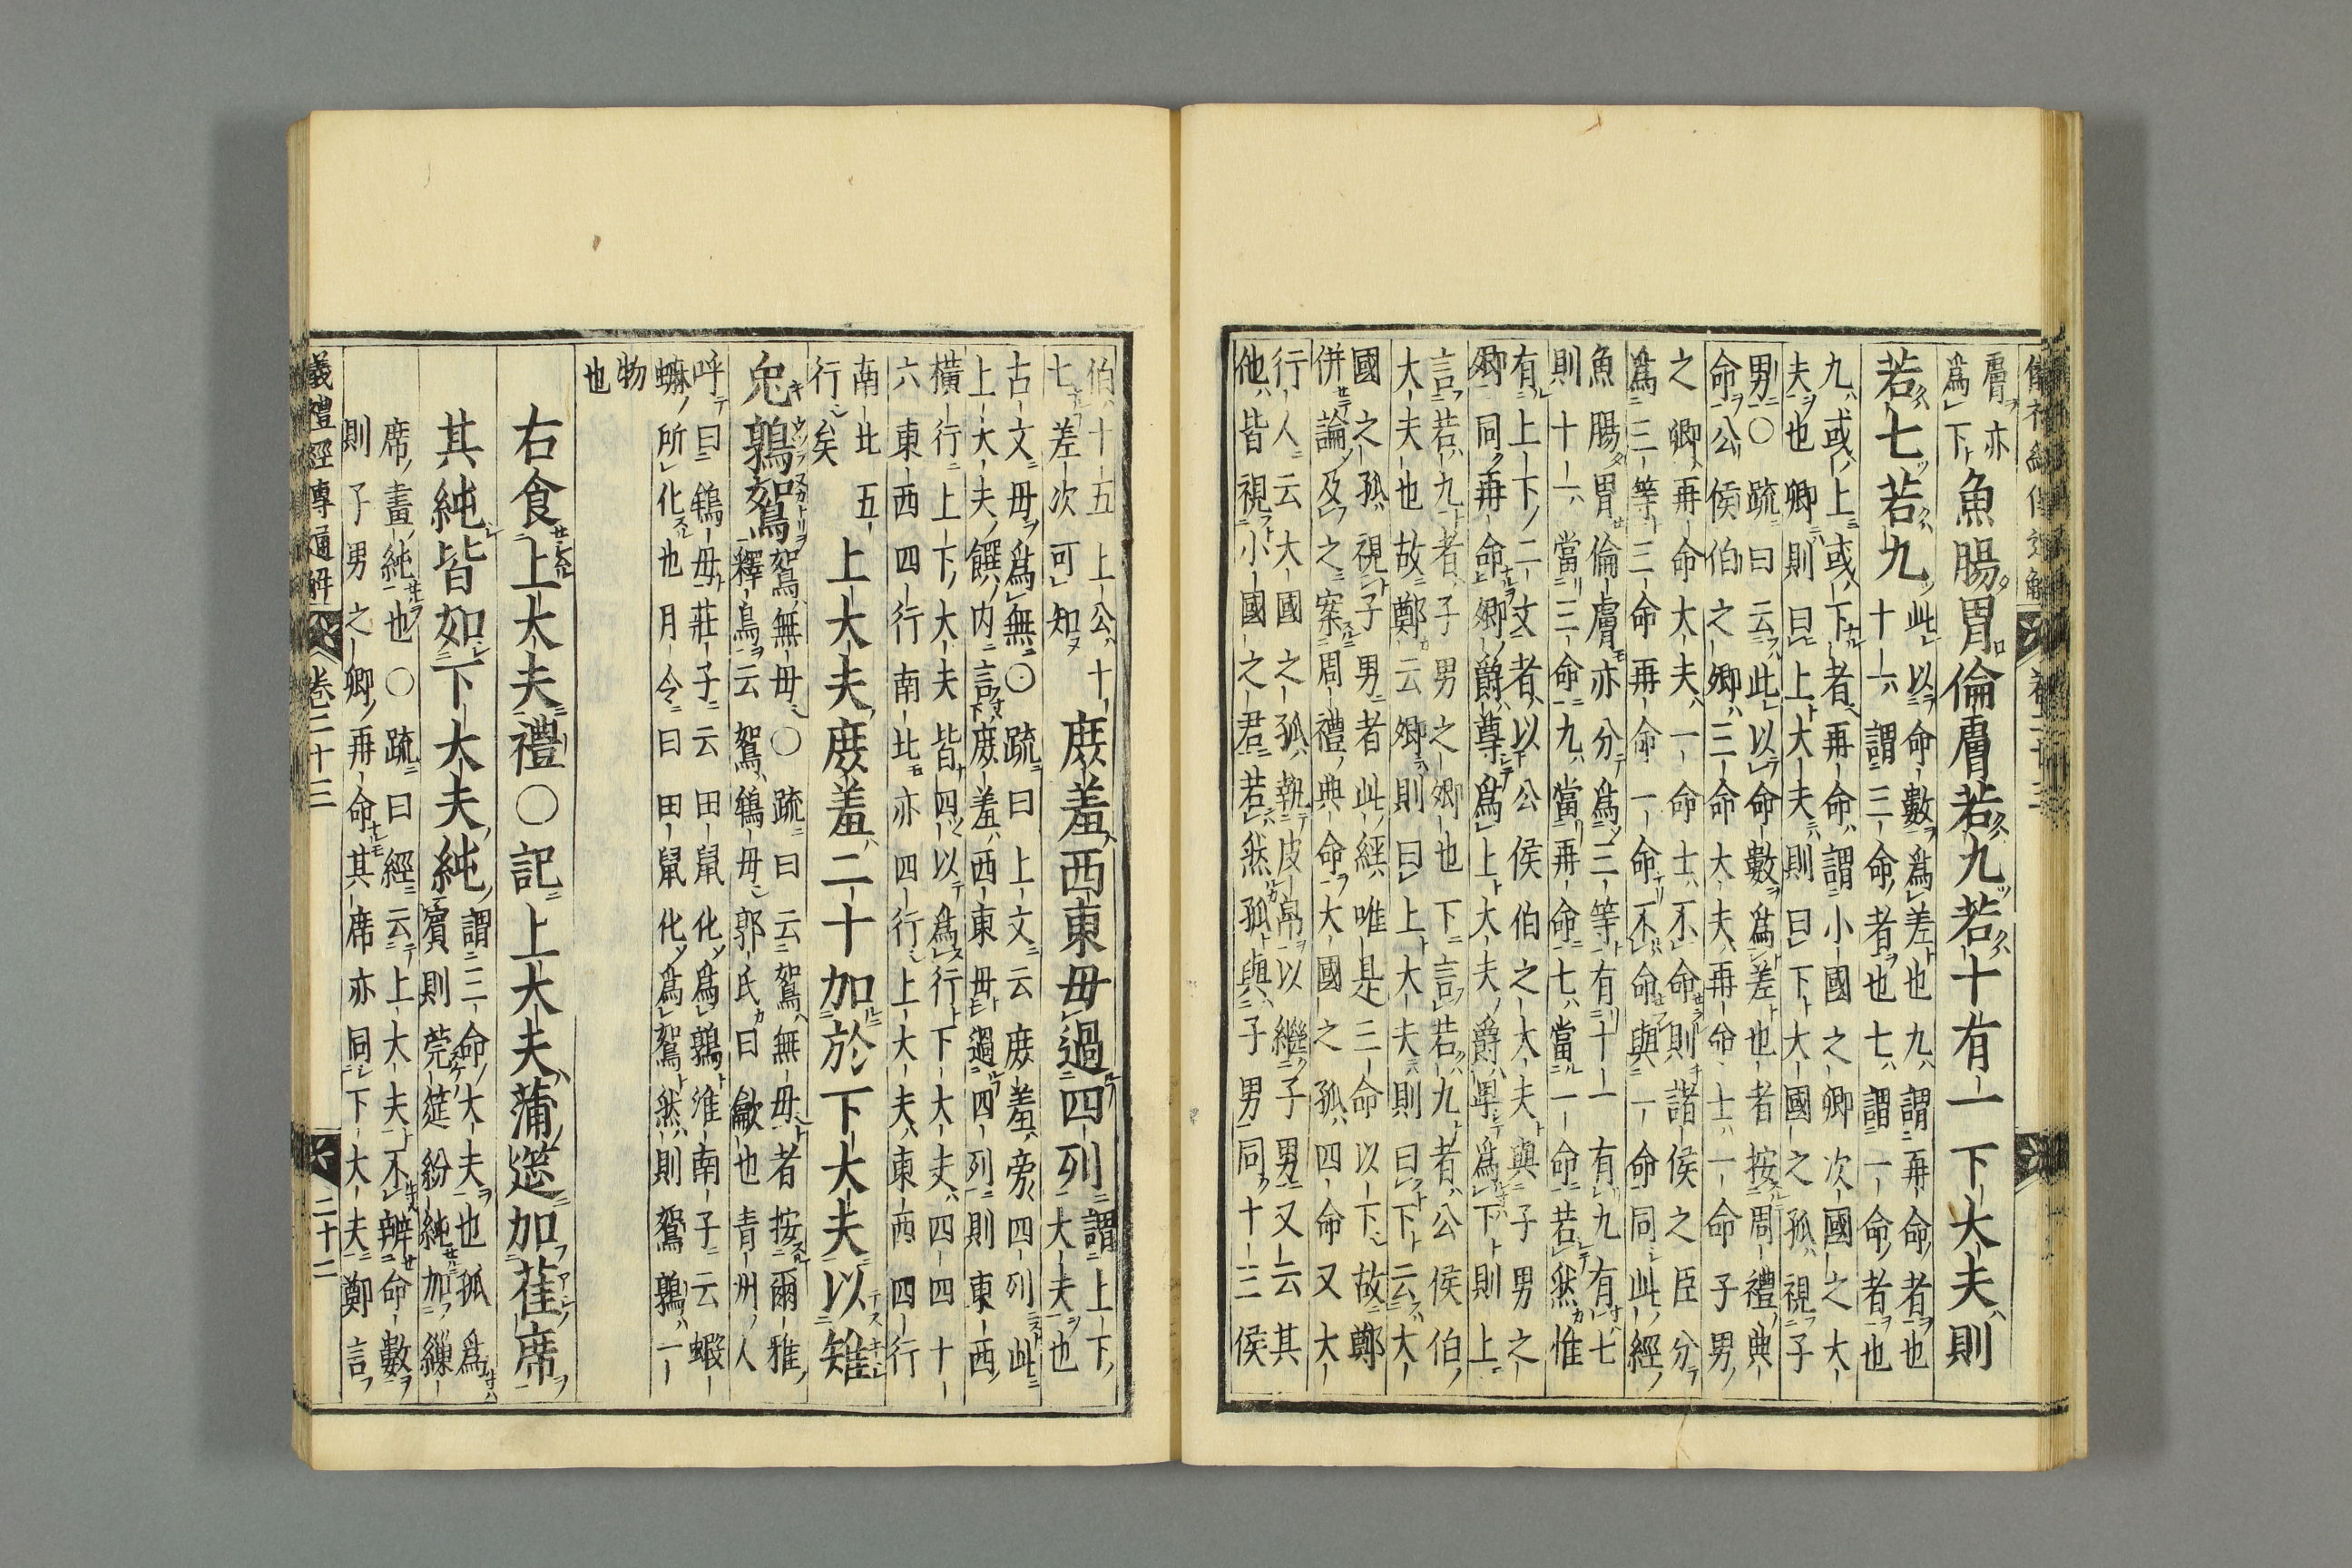 膚亦
爲下
魚腸胃倫膚若九若十有一下大夫則
若七若九
此以命數爲差也九謂再命者也
十一謂三命者也七謂一命者也
九或上或下者再命謂小國之卿次國之大
夫也卿則曰上大夫則曰下大國之孤視子
男○疏曰云此以命數爲差也者按周禮典
命公侯伯之卿三命大夫再命士一命子男
之卿再命大夫一命士不命則諸侯之臣分
爲三等三命再命一命不命與一命同此經
魚腸胃倫膚亦分爲三等有十一有九有七
則十一當三命九當再命七當一命若然惟
有上下二文者以公侯伯之大夫與子男之
卿同再命卿爵尊爲上大夫爵卑爲下則上
言若九者子男之卿也下言若九者公侯伯
大夫也故鄭云卿則曰上大夫則曰下云大
國之孤視子男者此經唯是三命以下故鄭
併論及之案周禮典命大國之孤四命又大
行人云大國之孤執皮帛以繼子男又云其
他皆視小國之君若然孤與子男同十三侯
伯十五上公十
七差次可知
庶羞西東毋過四列
謂上下
大夫也
古文毋爲無○疏曰上文云庶羞旁四列此
上大夫饌内言庶羞西東毋過四列則東西
橫行上下大夫皆四以爲行下大夫四四十
六東西四行南北亦四行上大夫東西四行
南北五
行矣
上大夫庶羞二十加於下大夫以雉
兔鶉鴽
鴽無毋○疏曰云鴽無毋者按爾雅
釋鳥云鴽鴾毋郭氏曰也青州人
呼曰鴾毋莊子云田鼠化爲鶉淮南子云蝦
蟆所化也月令曰田鼠化爲鴽然則鴽鶉一
物
也
右食上大夫禮○記上大夫蒲筵加萑席
其純皆如下大夫純
謂三命大夫也孤爲
賓則莞筵紛純加繅
席畫純也○疏曰經云上大夫不辨命數
則子男之卿再命其席亦同下大夫鄭言
儀禮經傳通解 卷二十三 二十二